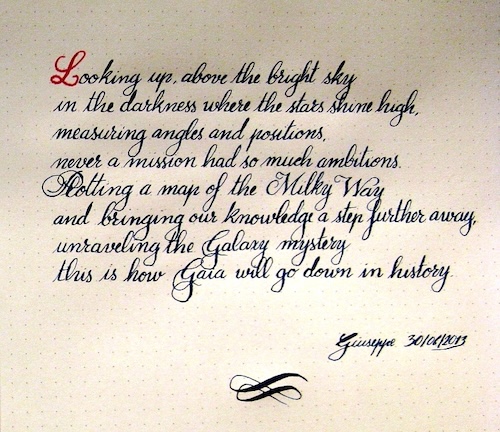 Looking up, above the bright sky
in the darkness where the stars shine high,
measuring angles and positions,
never a mission had so much ambitions.
Plotting a map of the Milky Way
and bringing our knowledge a step further away,
unraveling the Galaxy mystery
this is how Gaia will go down in history.
Giuseppe